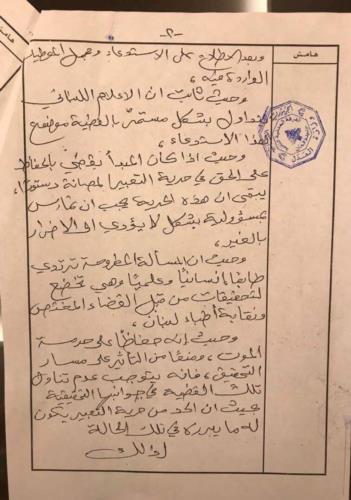 -٢-
هامش
هامش
وبعد الاطلاع على الاستدعاء ومجمل المعطيات
الواردة فيه،
وحيث ثابت ان الاعلام اللبناني
يتداول بشكل مستمر بالقضية موضوع
هذا الاستدعاء،
وحيث اذا كان المبدأ يقضي بالحفاظ
على الحق في حرية التعبير المصانة دستورياً،
يبقى ان هذه الحرية يجب ان تمارس
بمسؤولية بشكل لا يؤدي الى الاضرار
بالغير،
وحيث ان المسألة المطروحة ترتدي
طابعاً انسانياً وعلمياً وهي تخضع
لتحقيقات من قبل القضاء المختص
ونقابة أطباء لبنان،
وحيث إنه حفاظاً على حرمة
الموت، ومنعاً من التأثير على مسار
التحقيق، فانه يتوجب عدم تناول
تلك القضية في جوانبها التحقيقية
بحيث ان الحد من حرية التعبير يكون
له ما يبرره في تلك الحالة
لذلك